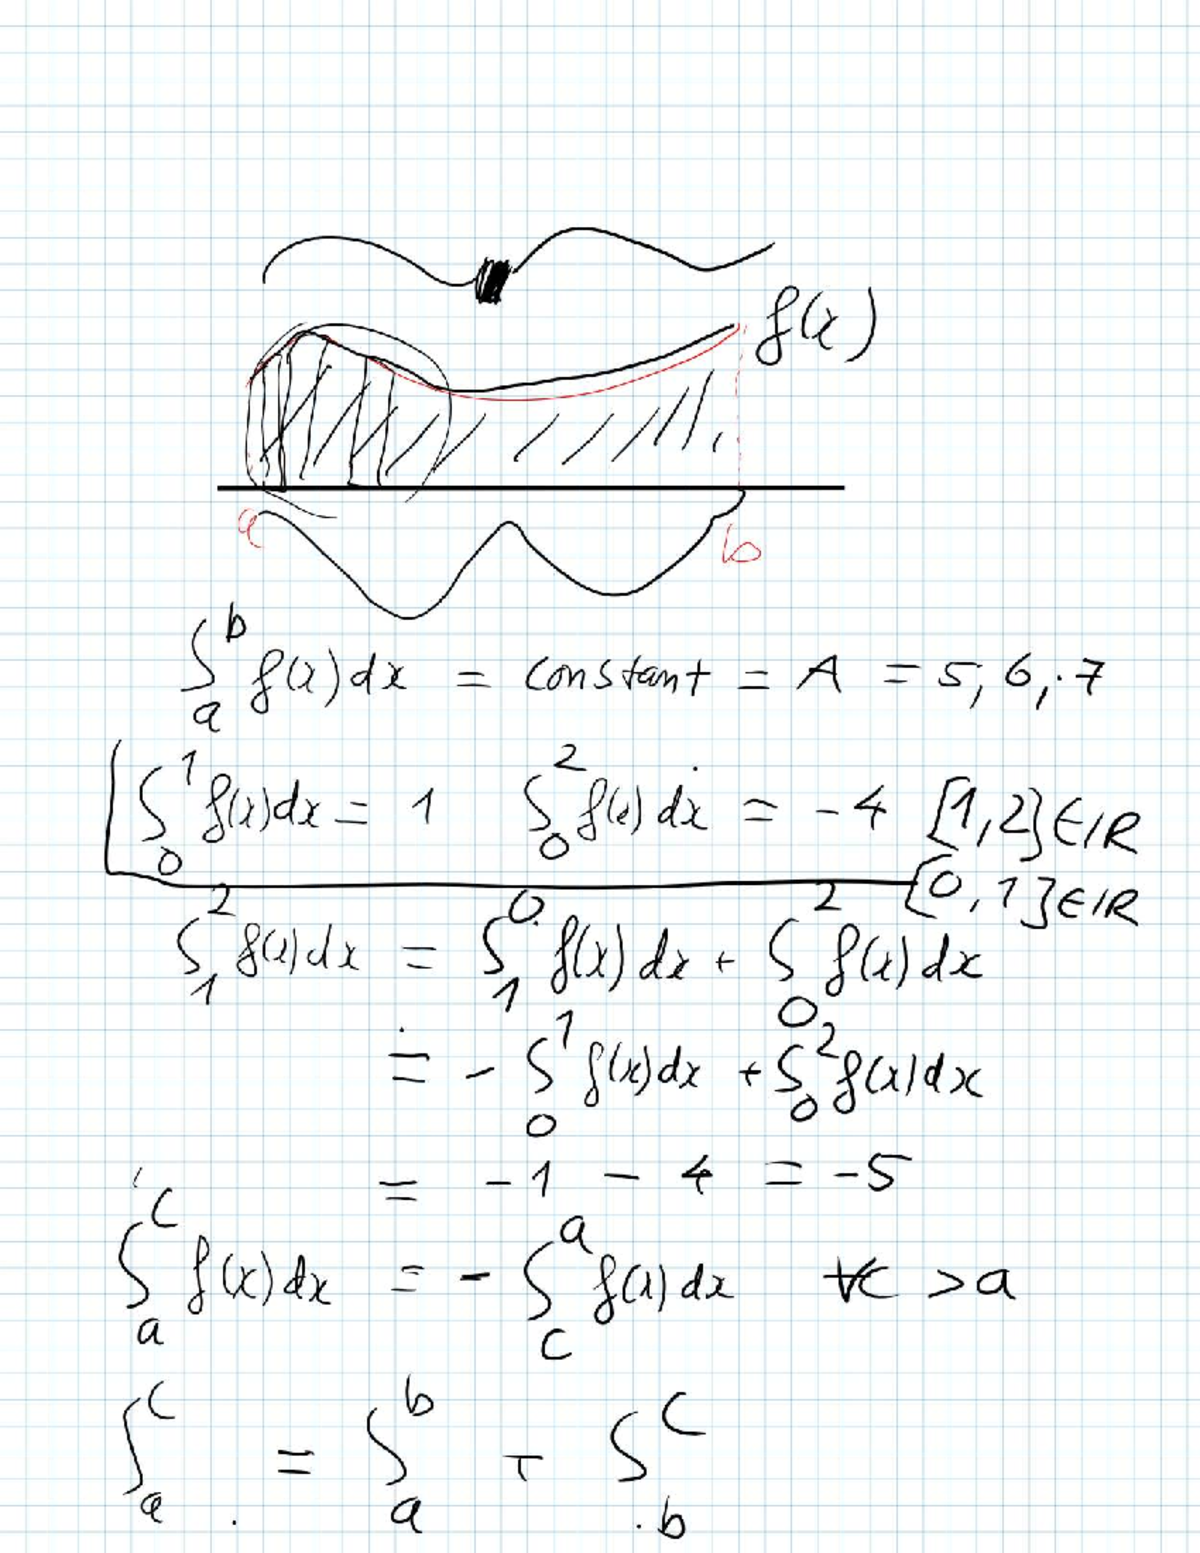 f(x)
a b
∫_a^b f(x) dx = constant = A = 5, 6, 7
∫_0^1 f(x) dx = 1 ∫_0^2 f(x) dx = -4 [1,2] ∈ IR
[0,1] ∈ IR
∫_1^2 f(x) dx = ∫_1^0 f(x) dx + ∫_0^2 f(x) dx
= - ∫_0^1 f(x) dx + ∫_0^2 f(x) dx
= -1 - 4 = -5
∫_a^c f(x) dx = - ∫_c^a f(x) dx ∀c > a
∫_a^c = ∫_a^b + ∫_b^c